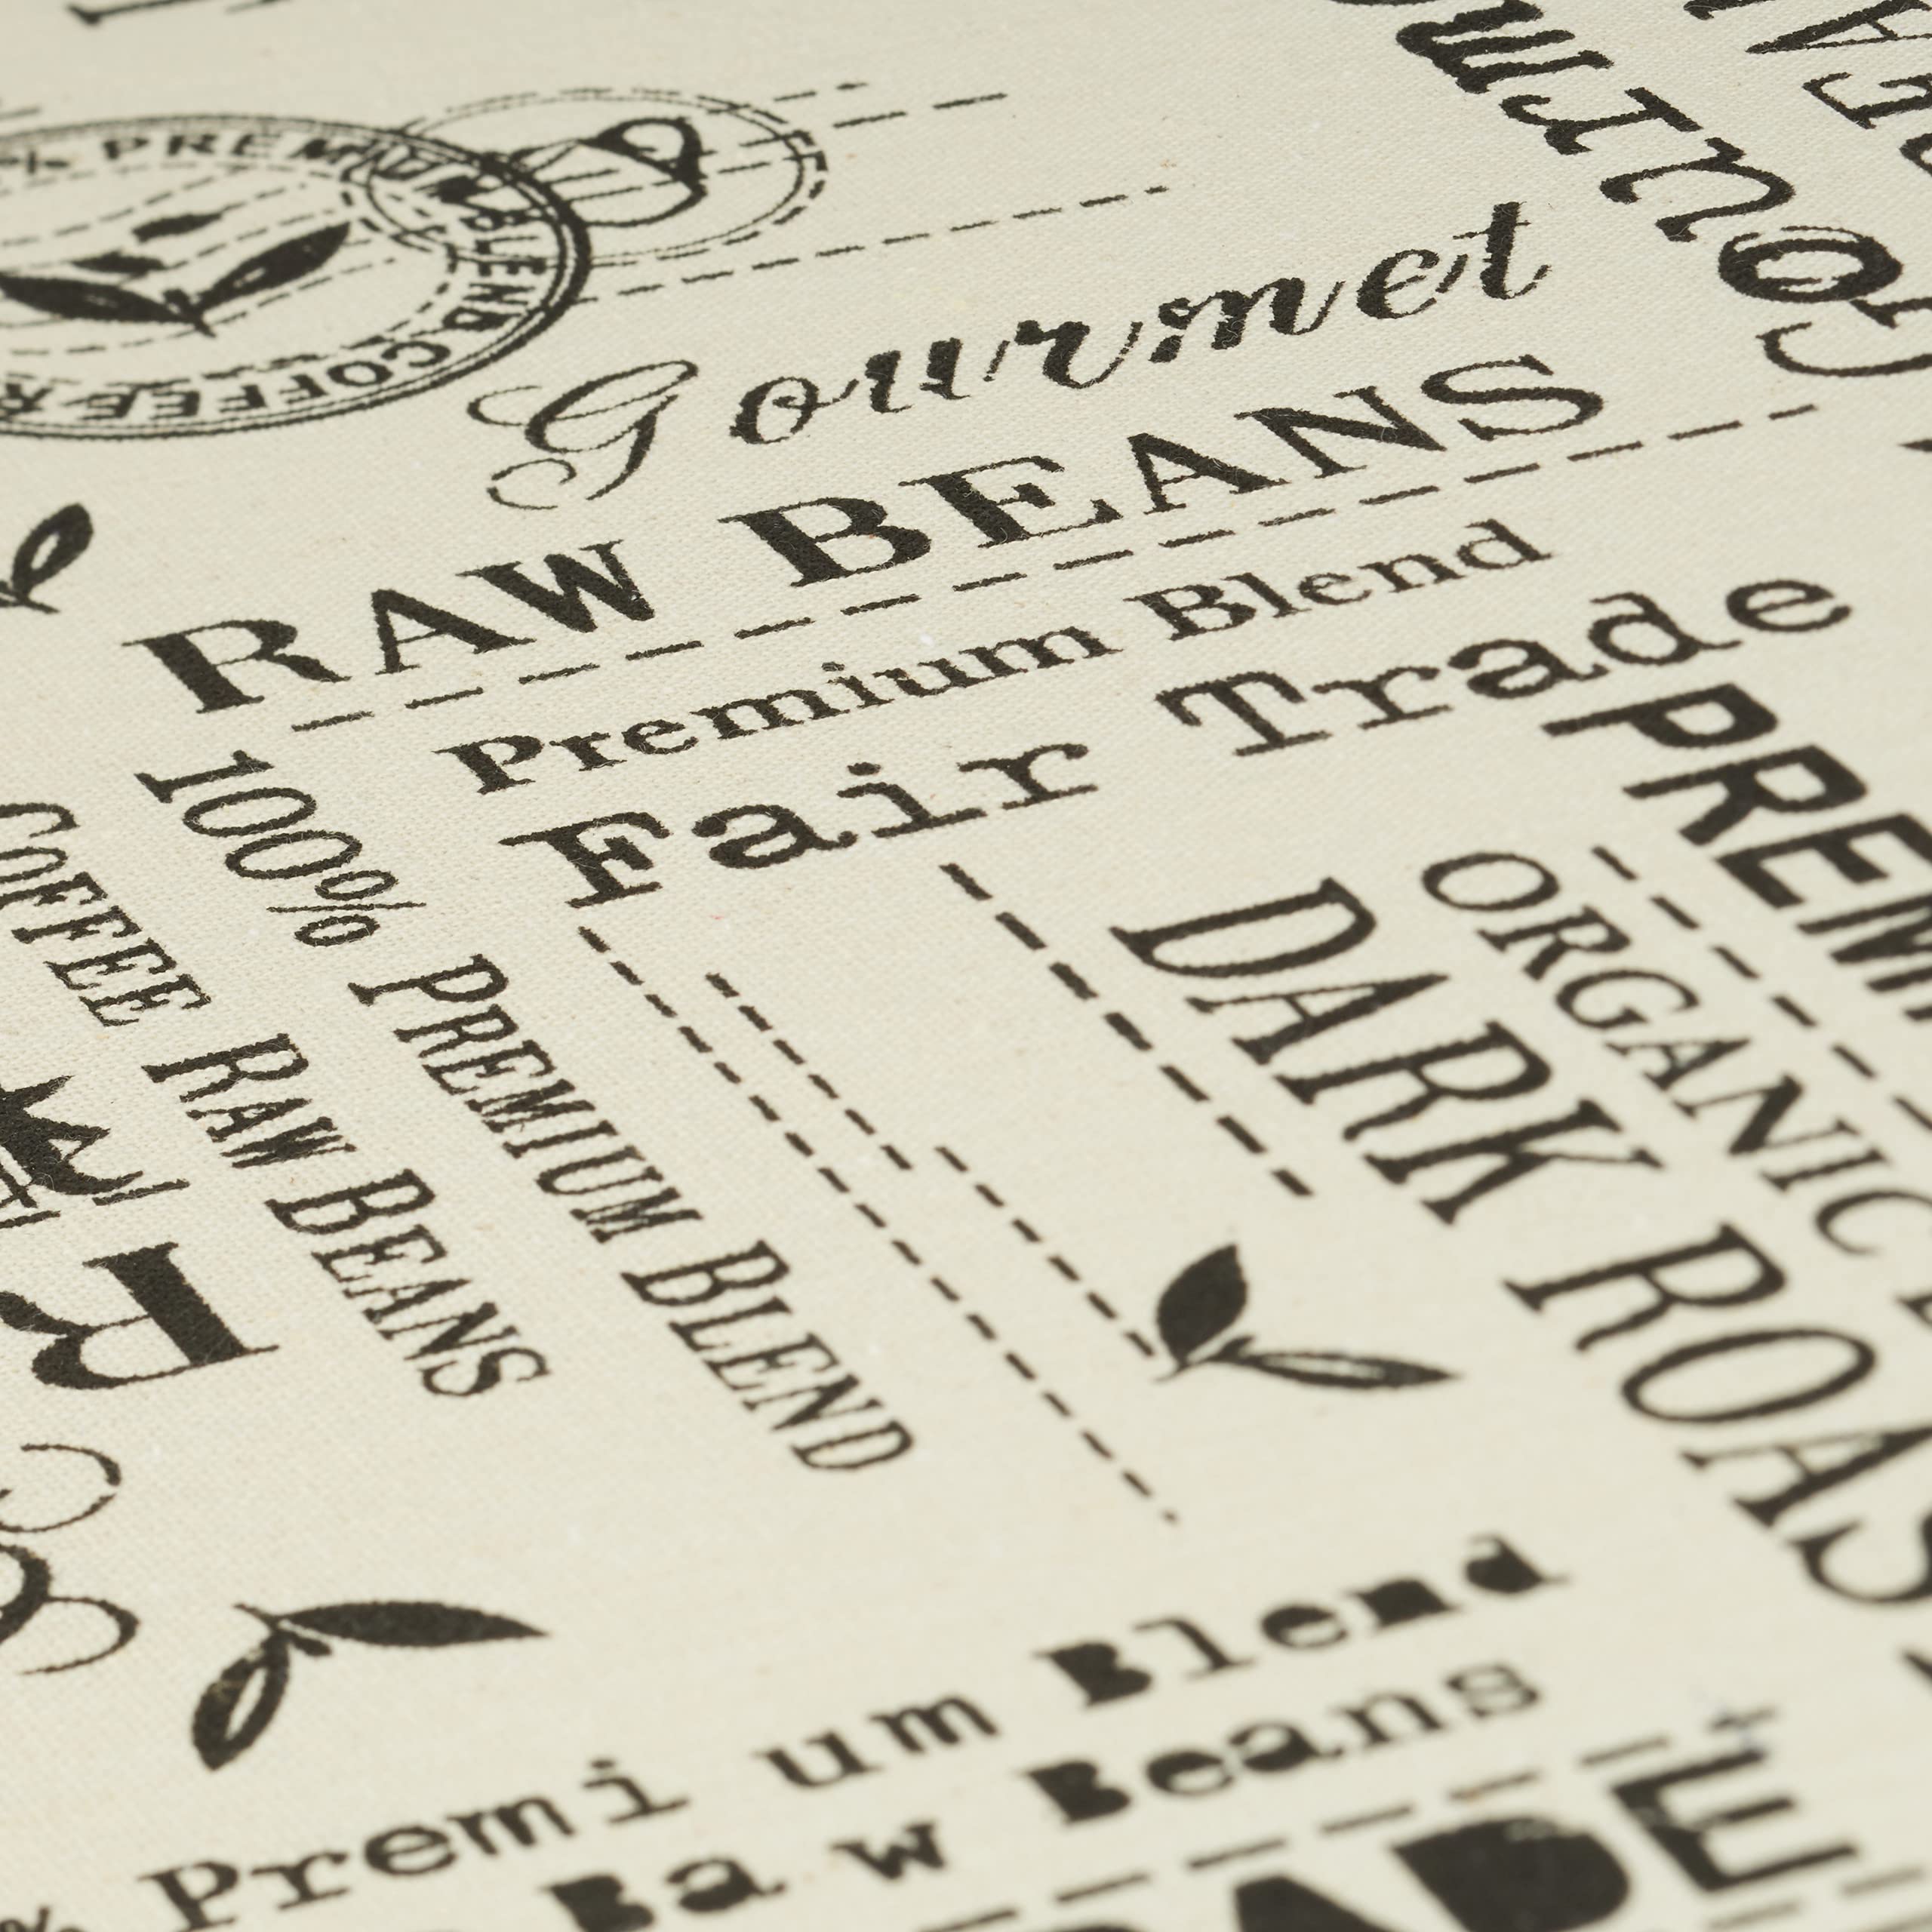 % PREMIUM BLEND COFFEE R
Gourmet
RAW BEANS
Premium Blend
Fair Trade
100% PREMIUM BLEND
COFFEE RAW BEANS
PREM
ORGANIC
DARK ROAS
R
% Premi um Blend
Raw Beans
ADE